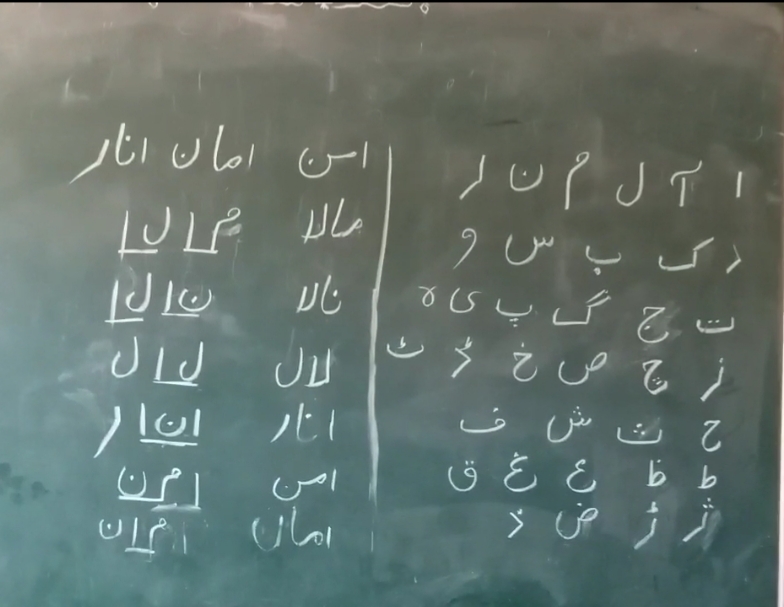 ا آ ل م ن ر
د ک ب س و
ت ج گ پ ی ہ
ز چ ص خ ڈ ٹ
ح ث ش ف
ط ظ ع غ ق
ژ ڑ ض ذ
امن امان انار
مالا م ا ل ا
نالا ن ا ل ا
لال ل ا ل
انار ا ن ا ر
امن ا م ن
امان ا م ا ن